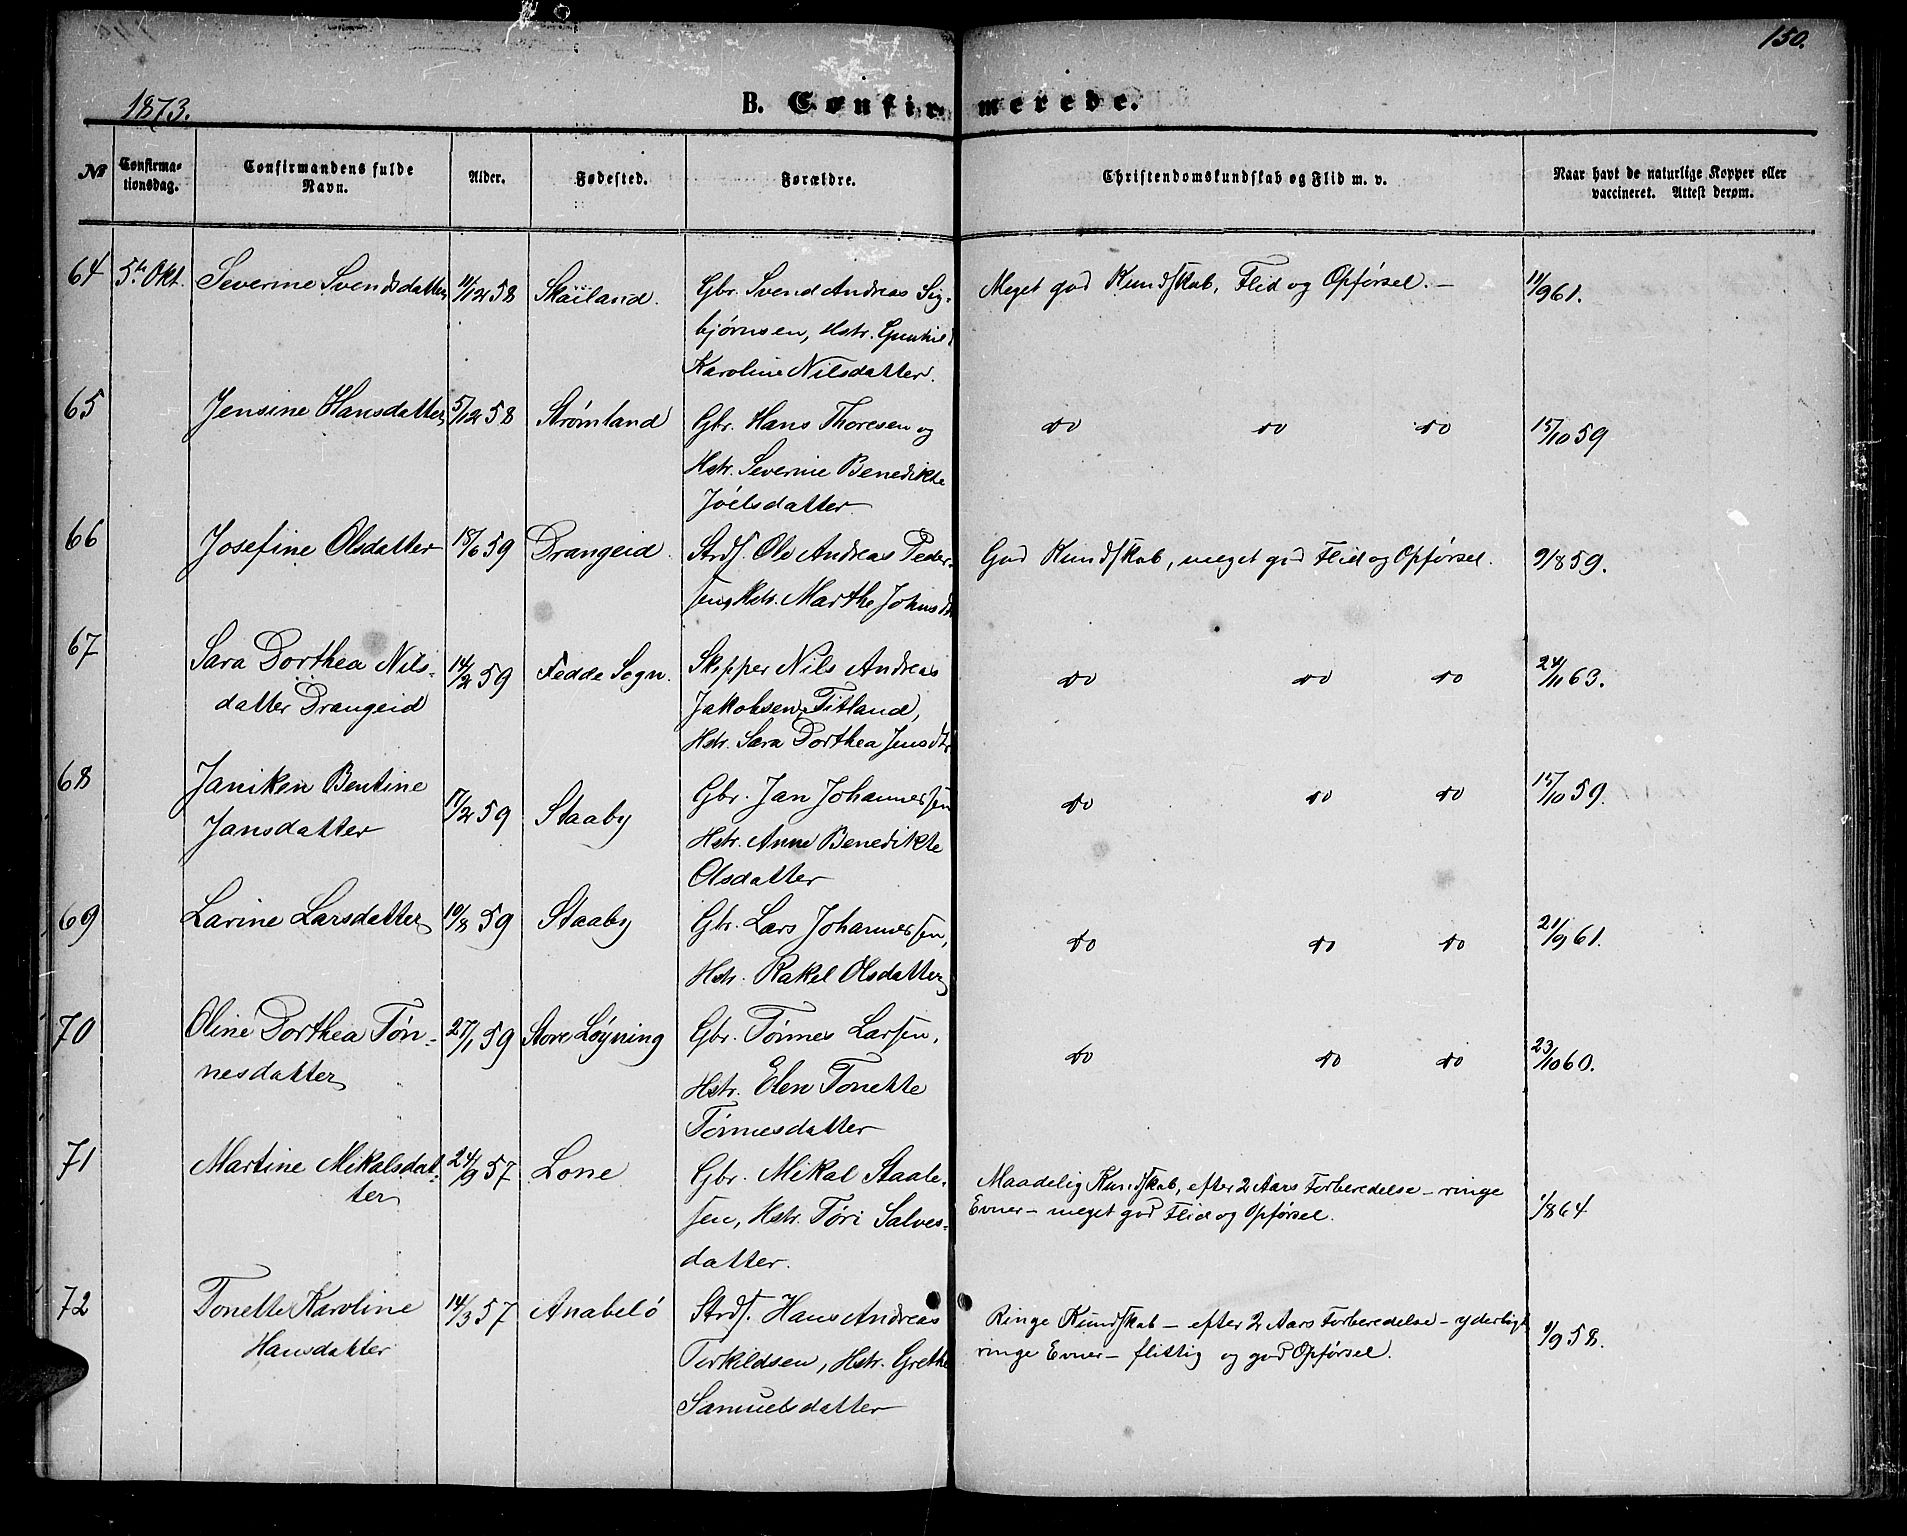 150.
1873.
B. Confirmerede.
No Confirmationsdag. Confirmandens fulde Navn. Alder. Fødested. Forældre. Christendomskundskab og Flid m. v. Naar havt de naturlige Kopper eller vaccineret. Attest derom.
64 5te Okt. Severine Svendsdatter 11/12 58 Skailand. Gbr. Svend Andreas Sig- Meget god Kundskab, Flid og Opførsel. – 11/9 61.
bjørnsen, Hstr. Gunhild
Karoline Nilsdatter.
65 Jensine Hansdatter 5/12 58 Strømland Gbr. Hans Thoresen og do do do 15/10 59
Hstr. Severine Benedikte
Joelsdatter
66 Josefine Olsdatter 18/6 59 Drangeid. Strds. Ole Andreas Peder- God Kundskab, meget god Flid og Opførsel. 9/8 59.
sen, Hstr. Marthe Johnsdtr
67 Sara Dorthea Nils- 14/2 59 Fedde Sogn. Skipper Nils Andreas do do do 24/11 63.
datter Drangeid Jakobsen Fitland,
Hstr. Sara Dorthea Jensdtr
68 Janiken Bentine Gbr. Jan Johannessen do do do 15/10 59.
Jansdatter 17/2 59 Staaby Hstr. Anne Benedikte
Olsdatter
69 Larine Larsdatter 10/8 59 Staaby Gbr. Lars Johannessen, do do do 21/9 61.
Hstr. Rakel Olsdatter
70 Oline Dorthea Tøn- 27/1 59 Store Løyning Gbr. Tønnes Larsen, do do do 23/10 60.
nesdatter Hstr. Elen Tonette
Tønnesdatter
71 Martine Mikalsdat- 24/9 57 Lone Gbr. Mikal Staale- Maadelig Kundskab, efter 2 Aars Forberedelse – ringe
ter sen, Hstr. Tøri Salves- Evner – meget god Flid og Opførsel. 1/8 64
datter.
72 Tonette Karoline 14/3 57 Anabelø Strds. Hans Andreas Ringe Kundskab – efter 2 Aars Forberedelse – yderligt 1/9 58.
Hansdatter Terkildsen, Hstr. Grethe ringe Evner – flittig og god Opførsel.
Samuelsdatter